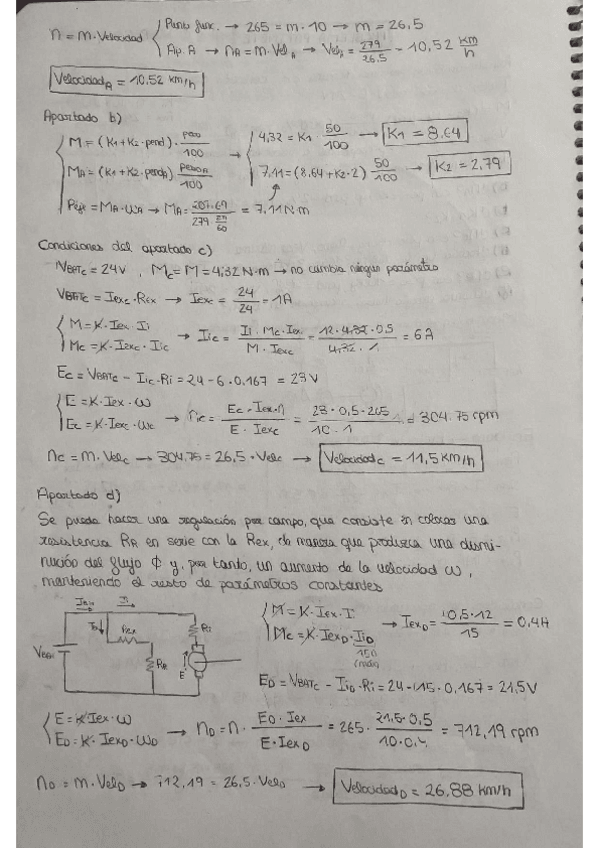 n = m·Velocidad { Punto func. → 265 = m·10 → m = 26,5
Ap. A → nA = m·VelA → VelA = 279/26,5 = 10,52 km/h
VelocidadA = 10,52 km/h
Apartado b)
M = (K1+K2·pend)·peso/100 → 4,32 = K1·50/100 → K1 = 8,64
MA = (K1+K2·pendA)·pesoA/100 7,11 = (8,64+K2·2) 50/100 → K2 = 2,79
Peje = MA·ωA → MA = 207,69/279 2π/60 = 7,11 N·m
Condiciones del apartado c)
VBATc = 24V , Mc = M = 4,32 N·m → no cambia ningún parámetro
VBATc = Iexc·Rex → Iexc = 24/24 = 1A
M = K·Iex·Ii
Mc = K·Iexc·Iic → Iic = Ii·Mc·Iex/M·Iexc = 12·4,32·0,5/4,32·1 = 6A
Ec = VBATc - Iic·Ri = 24 - 6·0,167 = 23V
E = K·Iex·ω
Ec = K·Iexc·ωc → nc = Ec·Iex·n/E·Iexc = 23·0,5·265/10·1 = 304,75 rpm
nc = m·Velc → 304,75 = 26,5·Velc → Velocidadc = 11,5 km/h
Apartado d)
Se puede hacer una regulación por campo, que consiste en colocar una
resistencia RA en serie con la Rex, de manera que produzca una dismi-
nución del flujo ϕ y, por tanto, un aumento de la velocidad ω,
manteniendo el resto de parámetros constantes
M = K·Iex·Ii
Mc = K·IexD·IiD → IexD = 0,5·12/15 = 0,4A
15A
VBAT
Ii
Rex
RA
Ri
E
ED = VBATc - IiD·Ri = 24 - (15·0,167 = 21,5V
E = K·Iex·ω
ED = K·IexD·ωD → nD = n·ED·Iex/E·IexD = 265·21,5·0,5/10·0,4 = 712,19 rpm
nD = m·VelD → 712,19 = 26,5·VelD → VelocidadD = 26,88 km/h